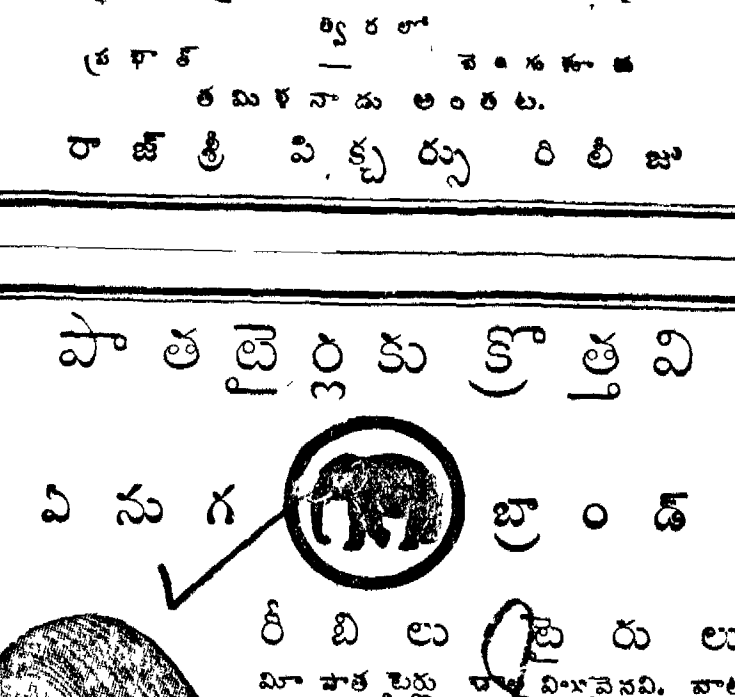 త్వరలో
ప్రభాత్ చెంగుకూరు
తమిళనాడు అంతట.
రాజ్‌శ్రీ పిక్చర్సు రిలీజు
పాతటైర్లకు క్రొత్తవి
ఏనుగ బ్రాండ్
రీబిలు టైరులు
మీ పాత టైర్లు చాల విలువైనవి.